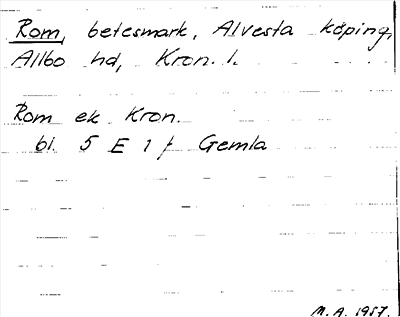 Rom, betesmark, Alvesta köping,
Allbo hd, Kron. l.
Rom ek Kron.
bl. 5 E 1 f Gemla
M. A. 1957.